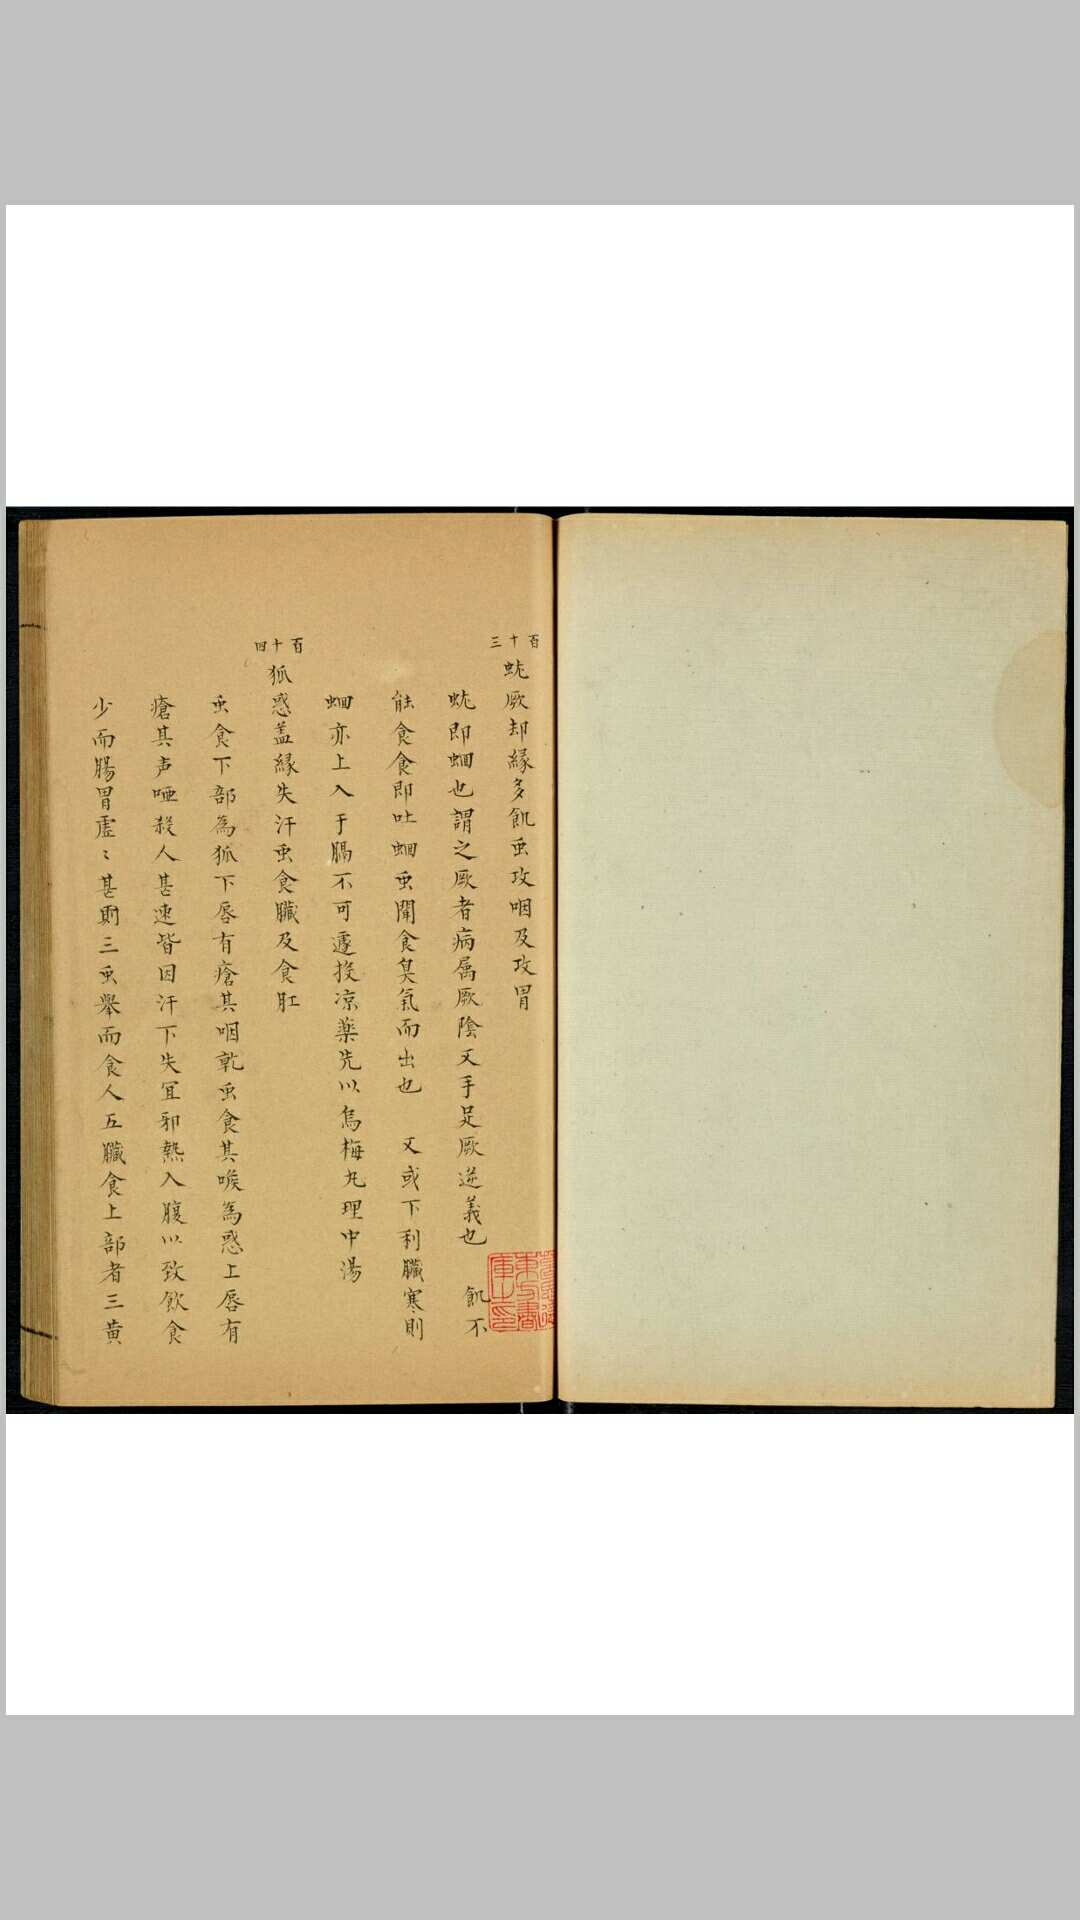 百十三
蚘厥却緣多飢䖝攻咽及攻胃
蚘即蛔也謂之厥者病属厥陰又手足厥逆義也 飢不
能食食即吐蛔䖝聞食臭氣而出也 又或下利臟寒則
蛔亦上入于膈不可遽投凉藥先以烏梅丸理中湯
百十四
狐惑盖緣失汗䖝食臟及食肛
䖝食下部為狐下唇有瘡其咽乾䖝食其喉為惑上唇有
瘡其声啞殺人甚速皆因汗下失冝邪熱入腹以致飲食
少而腸胃虛〻甚則三䖝舉而食人五臟食上部者三黄
東方書
庫之印